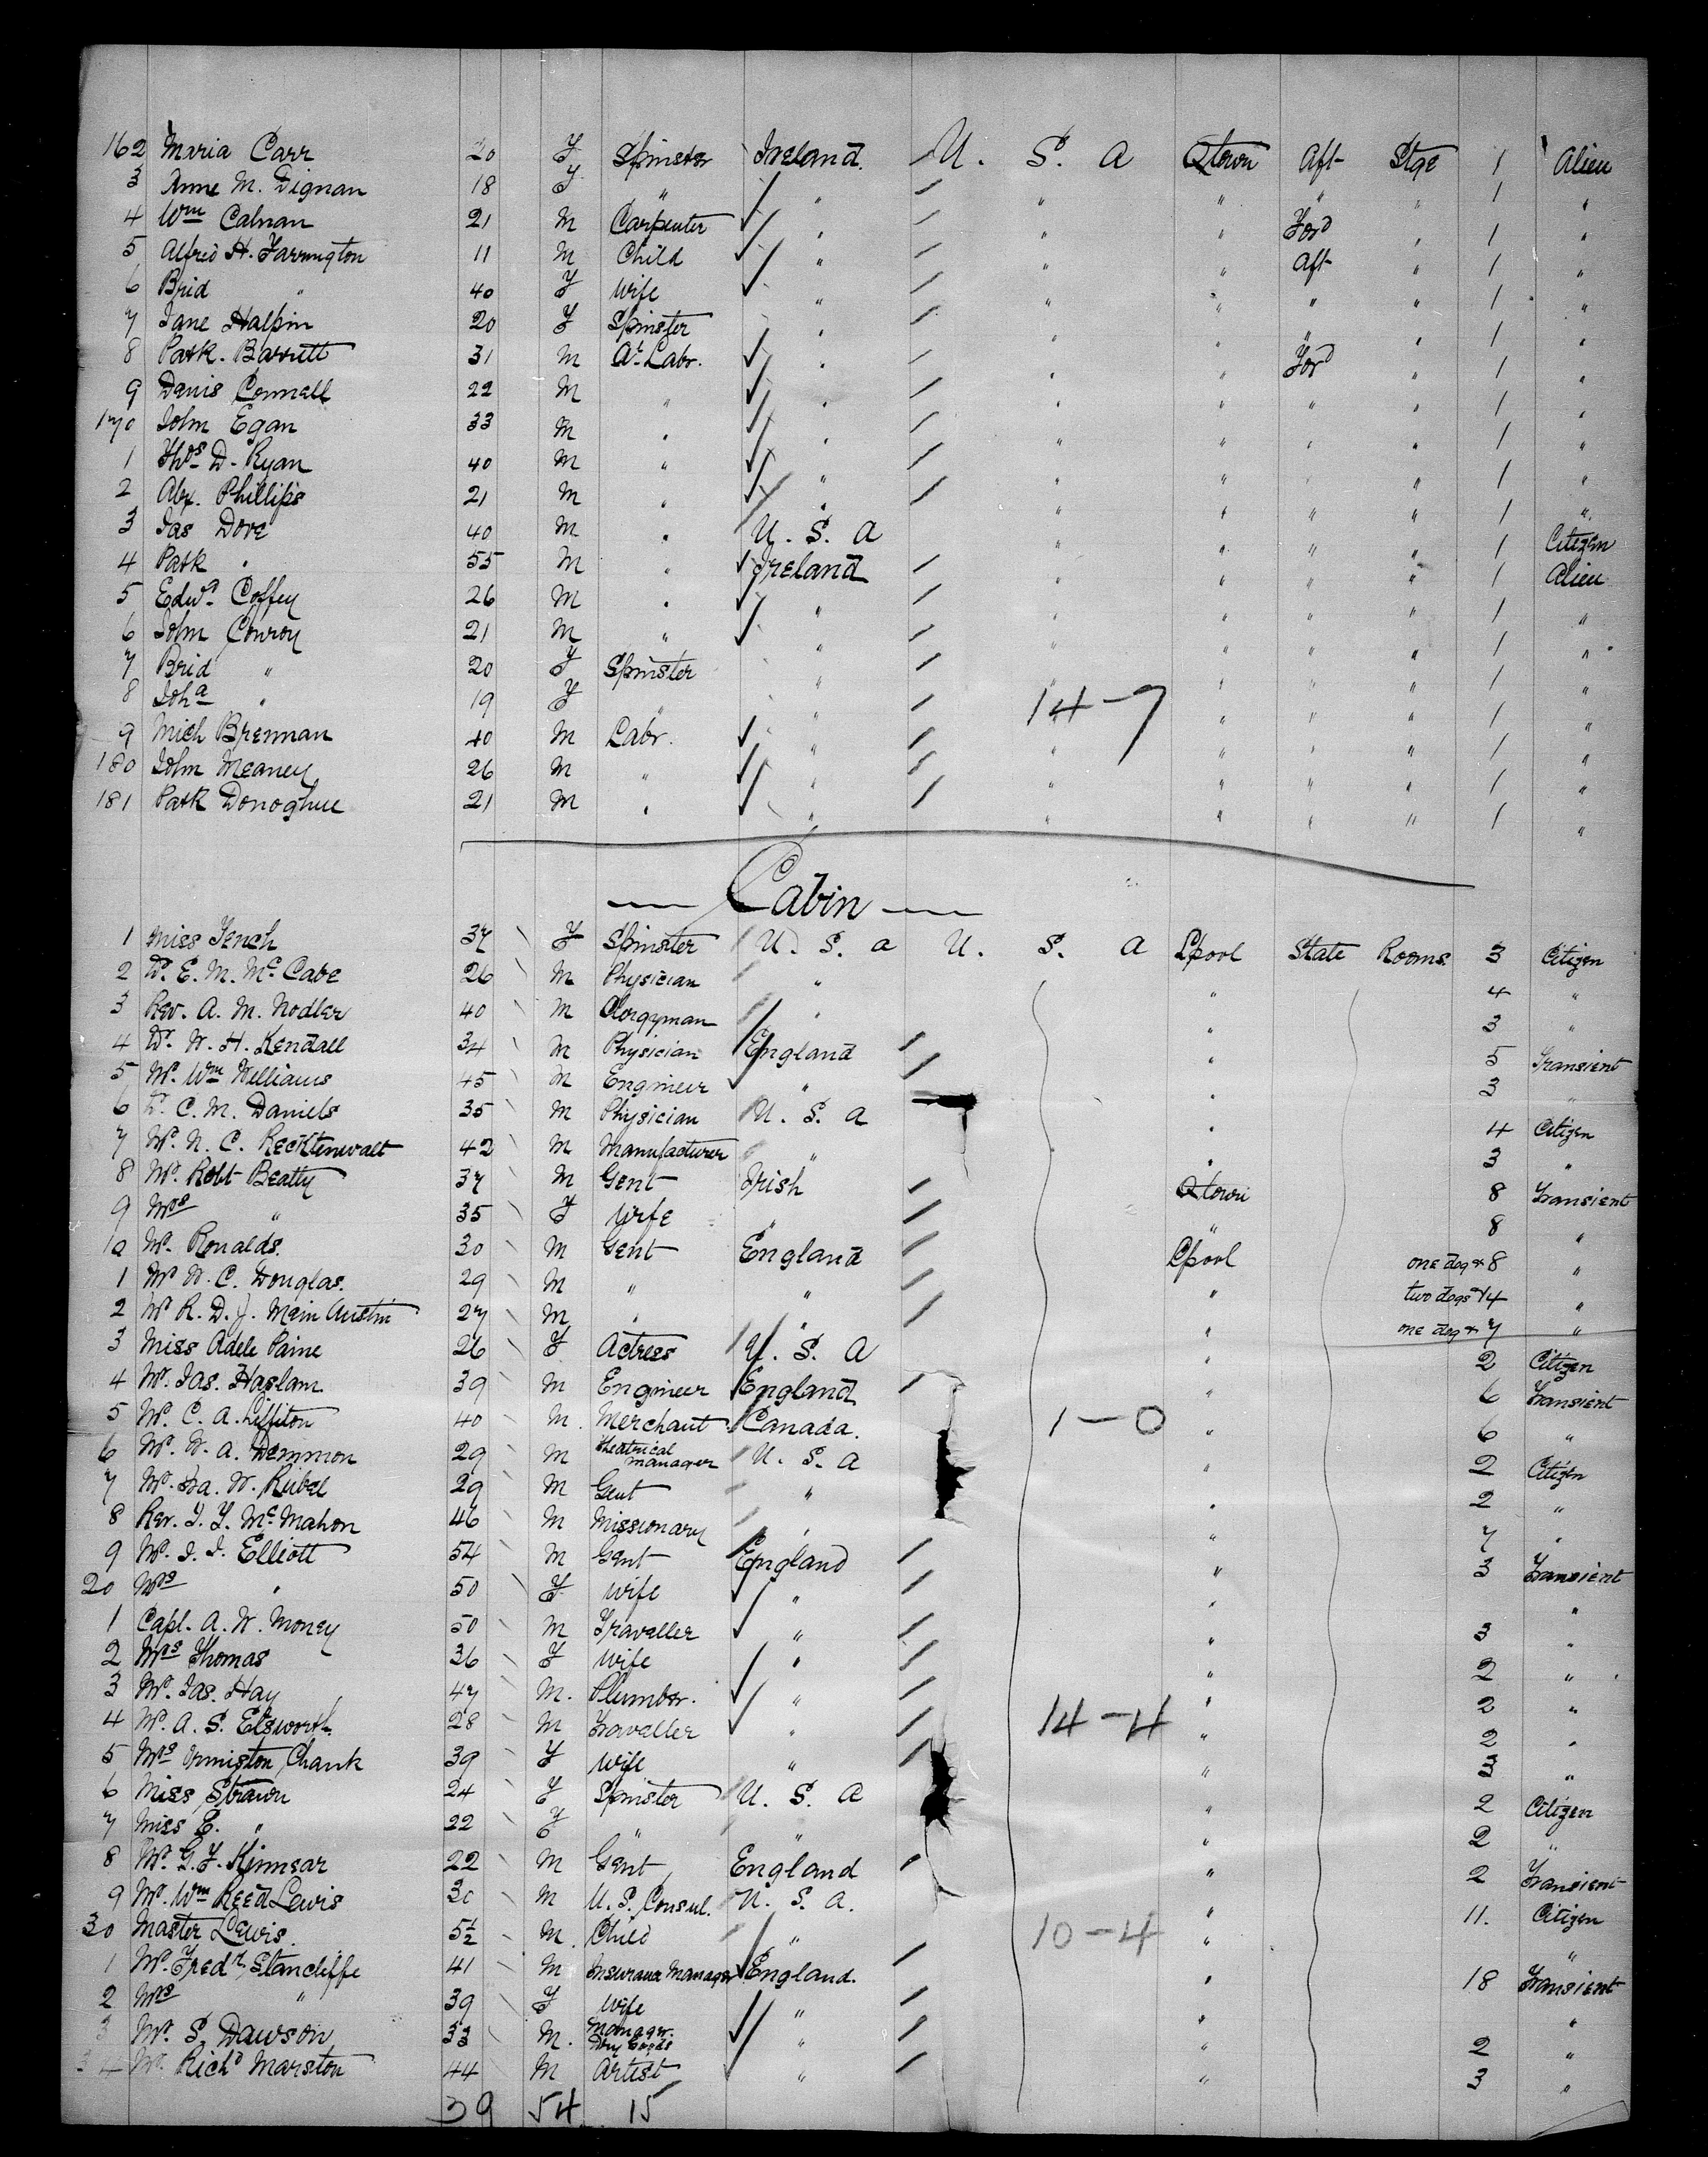 162 Maria Carr 20 F Spinster Ireland. U. S. A Qtown Aft Stge 1 Alien
3 Anne M. Dignan 18 F " " " " " " 1 "
4 Wm Calnan 21 M Carpenter " " " Ford " 1 "
5 Alfred H. Farrington 11 M Child " " " Aft " 1 "
6 Brid " 40 F Wife " " " " " 1 "
7 Jane Halpin 20 F Spinster " " " " " 1 "
8 Patk. Barrett 31 M At Labr. " " " Ford " 1 "
9 Denis Connell 22 M " " " " " " 1 "
170 John Egan 33 M " " " " " " 1 "
1 Thos D. Ryan 40 M " " " " " " 1 "
2 Alex. Phillips 21 M " " " " " " 1 "
3 Jas Dore 40 M " U. S. A " " " " 1 Citizen
4 Patk " 55 M " Ireland " " " " 1 Alien
5 Edwd Coffey 26 M " " " " " " 1 "
6 John Conroy 21 M " " " " " " 1 "
7 Brid " 20 F Spinster " " " " " 1 "
8 Joha " 19 F " " 14-7 " " " 1 "
9 Mich Brennan 40 M Labr. " " " " " 1 "
180 John Meaney 26 M " " " " " " 1 "
181 Patk Donoghue 21 M " " " " " " 1 "
— Cabin —
1 Miss Tench 37 F Spinster U. S. A U. S. A Lpool State Rooms. 3 Citizen
2 Dr. E. M. McCabe 26 M Physician " " 4 "
3 Rev. A. M. Nodler 40 M Clergyman " " 3 "
4 Dr. W. H. Kendall 34 M Physician England " 5 Transient
5 Mr. Wm Williams 45 M Engineer " " 3 "
6 Dr. C. M. Daniels 35 M Physician U. S. A " 4 Citizen
7 Mr. N. C. Recktenwalt 42 M Manufacturer " " 3 "
8 Mr. Robt Beatty 37 M Gent Irish Qtown 8 Transient
9 Mrs " 35 F Wife " " 8 "
10 Mr. Ronalds. 30 M Gent England Lpool one dog & 8 "
1 Mr W. C. Douglas. 29 M " " " two dogs & 14 "
2 Mr R. D. J. Mein Austin 27 M " " " one dog & 7 "
3 Miss Adele Paine 26 F Actress U. S. A " 2 Citizen
4 Mr. Jas. Haslam 39 M Engineer England " 6 Transient
5 Mr. C. A. Liffiton 40 M. Merchant Canada. 1-0 " 6 "
6 Mr. W. A. Demmon 29 M Theatrical manager U. S. A " 2 Citizen
7 Mr. Ira. W. Rubel 29 M Gent " " 2 "
8 Rev. J. T. McMahon 46 M Missionary " " 7 "
9 Mr. J. J. Elliott 54 M Gent England " 3 Transient
20 Mrs " 50 F wife " " "
1 Capt. A. W. Money 50 M Traveller " " 3 "
2 Mrs Thomas 36 F Wife " " 2 "
3 Mr. Jas. Hay 47 M. Plumber. " " 2 "
4 Mr. A. S. Elsworth 28 M Traveller " 14-4 " 2 "
5 Mrs Ormiston Chank 39 F wife " " 3 "
6 Miss Strawn 24 F Spinster U. S. A " 2 Citizen
7 Miss E. " 22 F " " " 2 "
8 Mr. G. F. Kinnear 22 M Gent England " 2 Transient
9 Mr. Wm Reed Lewis 30 M U. S. Consul. U. S. A. " 11. Citizen
30 Master Lewis. 5½ M. Child " 10-4 " "
1 Mr. Fredk Stancliffe 41 M Insurance Manager England. " 18 Transient
2 Mrs " 39 F Wife " " "
3 Mr. S. Dawson 33 M. Manager. Dry Goods " " 2 "
34 Mr. Richd Marston 44 M Artist " " 3 "
39 54 15